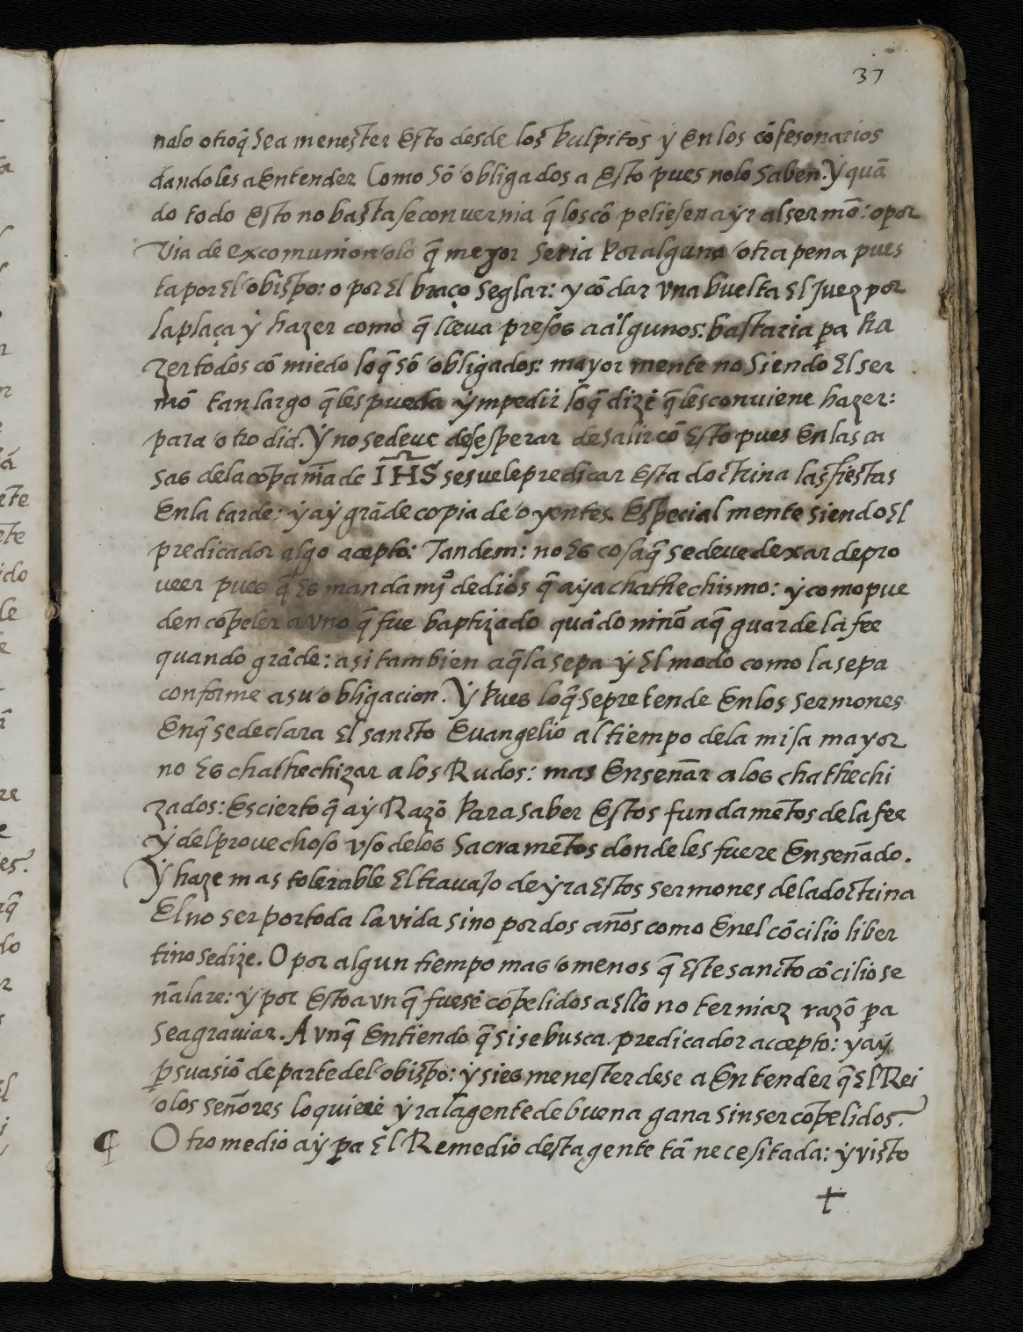 37
nalo otroq̃ sea menester Esto desde los pulpitos y en los cõfesonarios
dandoles a Entender Como sõ obligados a Esto pues nolo saben. Y quã
do todo Esto no basta se convernia q̃ los cõpeliesen a ẏr al sermõ: o por
via de excomunion o lo q̃ mejor seria por alguna otra pena pues
ta por El obispo: o por El braço seglar: y cõ dar una buelta El Juez por
la plaça ẏ hazer como q̃ lleva presos a algunos: bastaria p̱a ha
zer todos cõ miedo loq̃ sõ obligados: mayor mente no siendo El ser
mõ tan largo q̃ les pueda ẏmpedir loq̃ dizẽ q̃ les conviene hazer:
para otro dia. Y no se deve desesperar de salir cõ Esto pues En las ca
sas dela cõpañia de IHS se suele predicar Esta doctrina las fiestas
En la tarde: ẏ aẏ grãde copia de oyentes. Especial mente siendo El
predicador algo acepto: Tandem: no Es cosa q̃ se deve dexar de pro
veer pues q̃ Es mandamiº de dios q̃ aẏa chathechismo: ẏ como pue
den cõpeler a uno q̃ fue baptizado quãdo niño aq̃ guarde la fee
quando grãde: asi tambien aq̃ la sepa ẏ El modo como la sepa
conforme a su obligacion. Y pues loq̃ se pretende En los sermones
En q̃ se declara El sancto Evangelio al tiempo dela misa mayor
no Es chathechizar a los Rudos: mas Enseñar a los chathechi
zados: Es cierto q̃ aẏ Razõ para saber Estos fundamẽtos de la fee
ẏ del provechoso uso delos Sacramẽtos donde les fuere Enseñado.
Y haze mas tolerable El travajo de ẏr a Estos sermones dela doctrina
El no ser por toda la vida sino por dos años como Enel cõcilio liber
tino se dize. O por algun tiempo mas o menos q̃ Este sancto cõcilio se
ñalare: ẏ por Esto aun q̃ fuesẽ cõpelidos a Ello no terniaz razõ p̱a
se agraviar. Aunq̃ Entiendo q̃ si se busca predicador accepto: y aẏ
p̱suasiõ de parte del obispo: ẏ si es menester dese a Entender q̃ El Rei
o los señores lo quierẽ ẏra la gente de buena gana sin ser cõpelidos.
¶ Otro medio aẏ p̱a El Remedio desta gente tã necesitada: ẏ visto
+